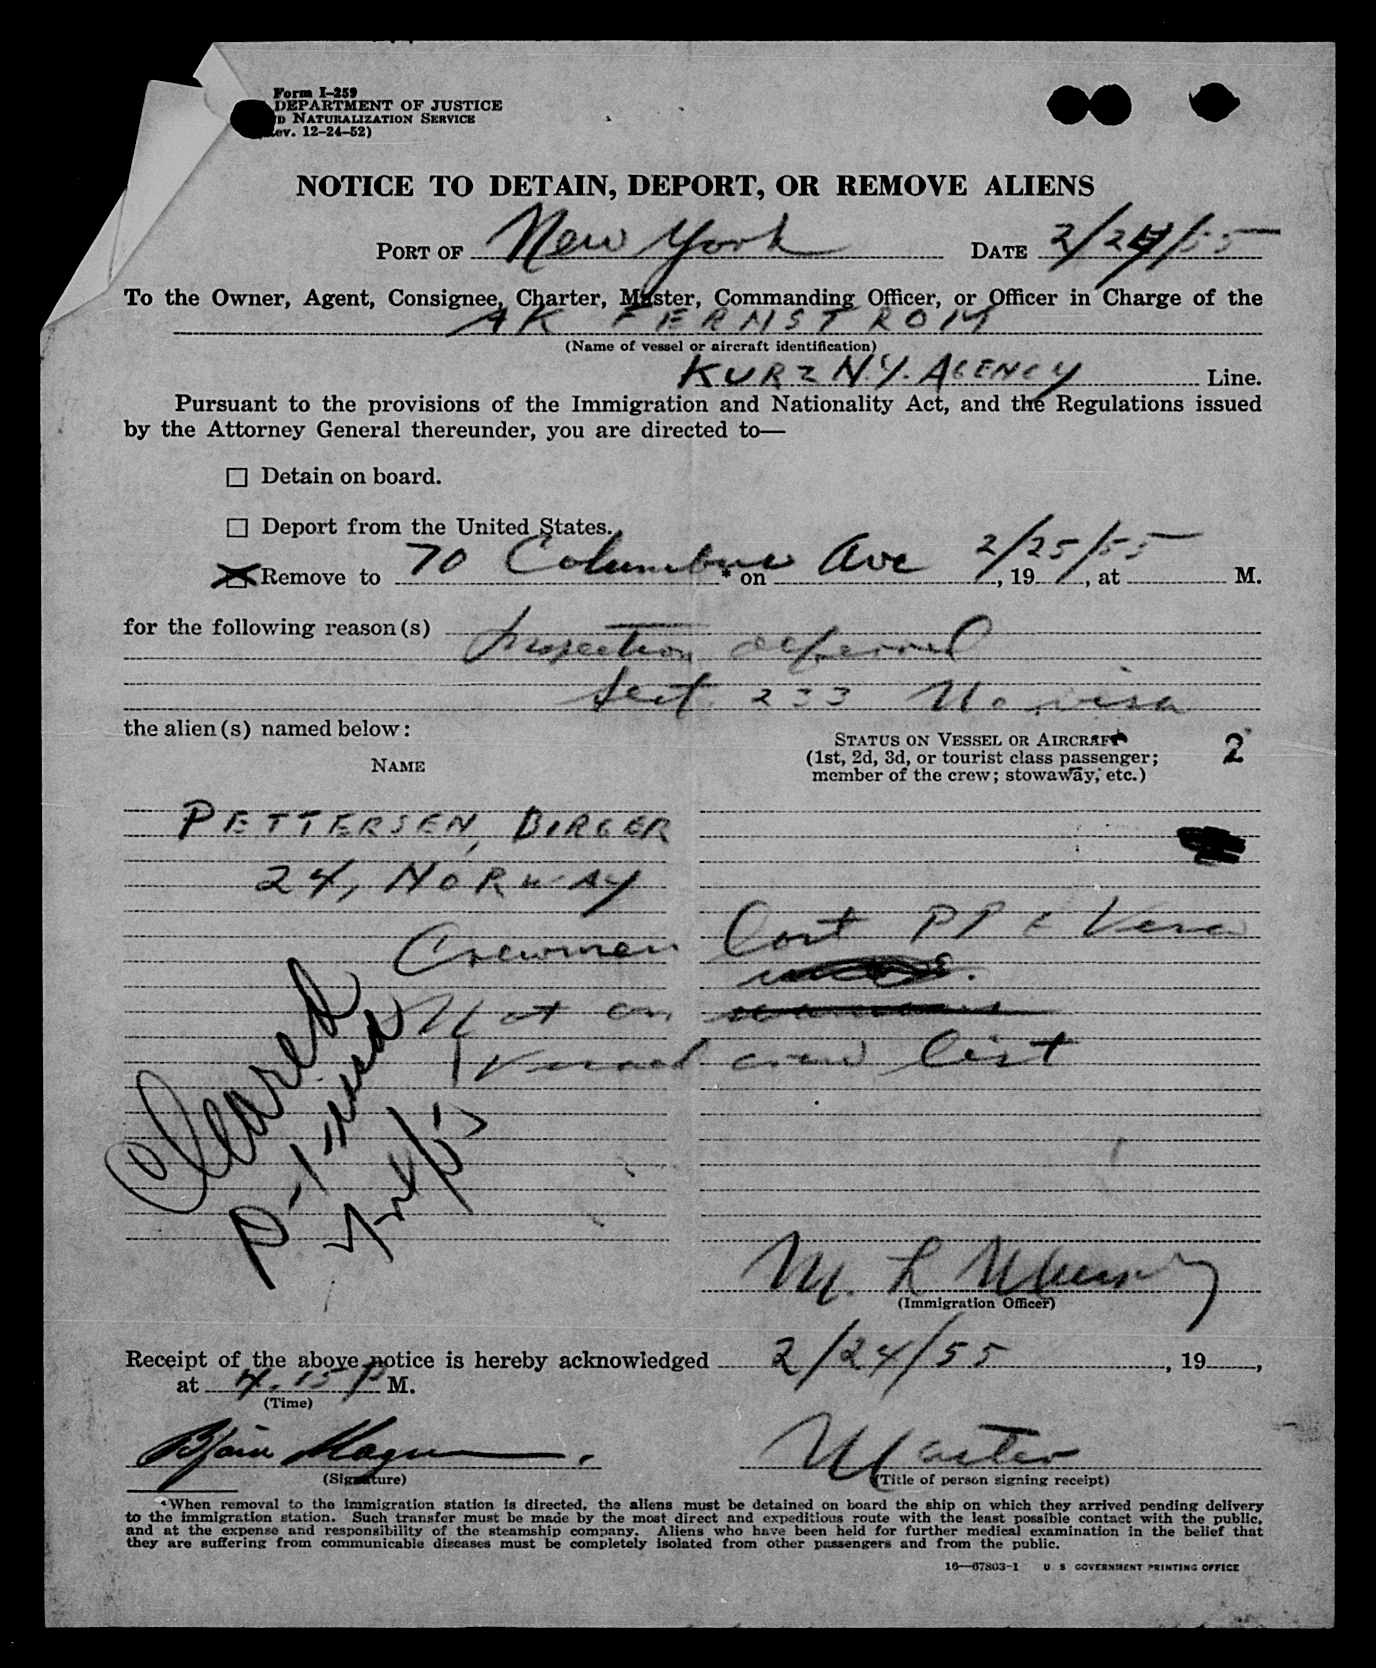 Form I-259
DEPARTMENT OF JUSTICE
NATURALIZATION SERVICE
ev. 12-24-52)
NOTICE TO DETAIN, DEPORT, OR REMOVE ALIENS
PORT OF New York DATE 2/24/55
To the Owner, Agent, Consignee, Charter, Master, Commanding Officer, or Officer in Charge of the
AK FERNSTROM
(Name of vessel or aircraft identification)
KURZ N.Y. AGENCY Line.
Pursuant to the provisions of the Immigration and Nationality Act, and the Regulations issued
by the Attorney General thereunder, you are directed to—
☐ Detain on board.
☐ Deport from the United States.
☒ Remove to 70 Columbus * on Ave 2/25/55, 19, at M.
for the following reason(s) Inspection deferred
Sect. 233 No visa
the alien(s) named below:
STATUS ON VESSEL OR AIRCRAFT
(1st, 2d, 3d, or tourist class passenger;
member of the crew; stowaway, etc.)
2
NAME
PETTERSEN, BIRGER
24, NORWAY
Crewmen Lost PP
Not on
Vessel crew list
Cleared
P-1
M. L.
(Immigration Officer)
Receipt of the above notice is hereby acknowledged 2/24/55, 19,
at 4.15 P M.
(Time)
Master
(Signature)
(Title of person signing receipt)
*When removal to the immigration station is directed, the aliens must be detained on board the ship on which they arrived pending delivery
to the immigration station. Such transfer must be made by the most direct and expeditious route with the least possible contact with the public,
and at the expense and responsibility of the steamship company. Aliens who have been held for further medical examination in the belief that
they are suffering from communicable diseases must be completely isolated from other passengers and from the public.
16—67803-1 U. S. GOVERNMENT PRINTING OFFICE